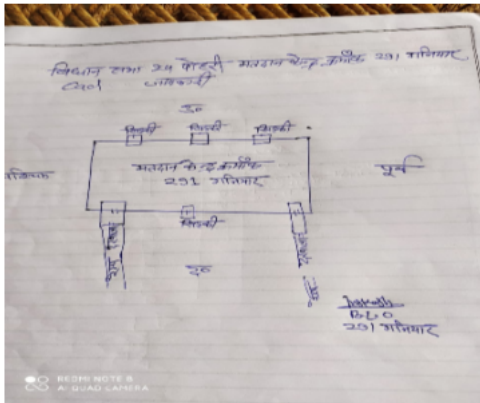 विधान सभा 24 पोहरी मतदान केन्द्र क्रमाँक 291 गनियार
Cad जानकारी
उ०
खिडकी खिडकी खिडकी
मतदान केन्द्र क्रमाँक
291 गनियार
पूर्व
खिडकी
द०
B.L.O
291 गनियार
REDMI NOTE 8
AI QUAD CAMERA